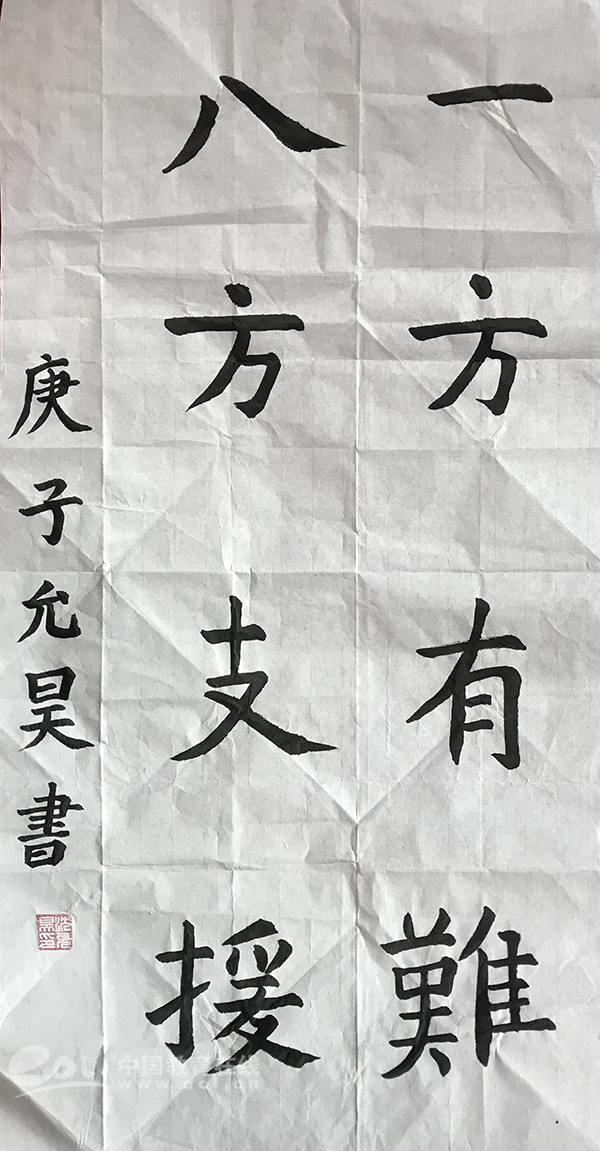 一方有難
八方支援
庚子允昊書
eol 中国教育在线
www.eol.cn